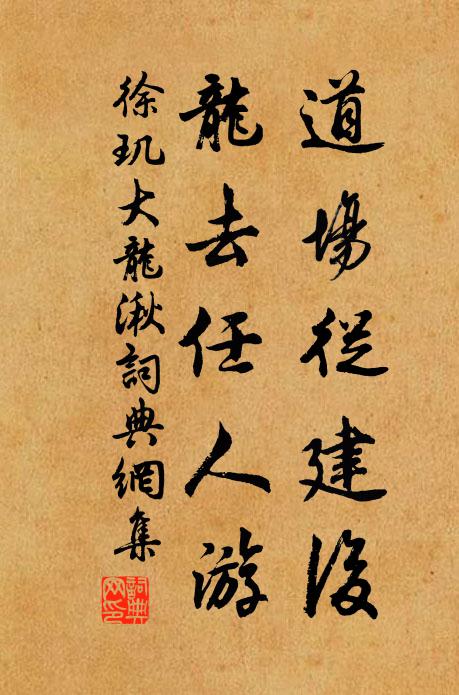 道場從建後
龍去任人游
徐玑大龍湫詞典網集
詞典网印